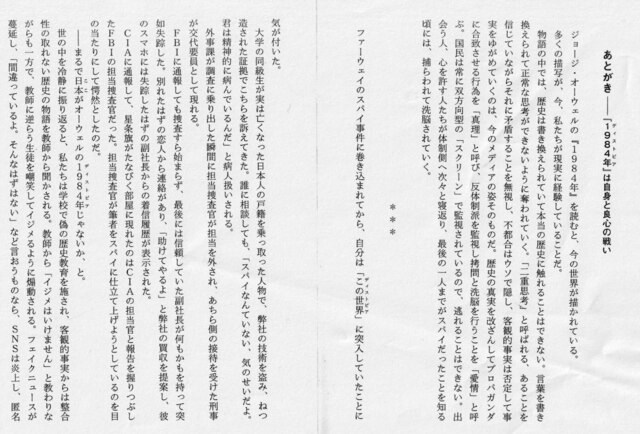 あとがき――「1984年」は自身と良心の戦い
ディストピア
ジョージ・オーウェルの『1984年』を読むと、今の世界が描かれている。
多くの描写が、今、私たちが現実に経験していることだ。
物語の中では、歴史は書き換えられていて本当の歴史に触れることはできない。言葉を書き
換えられて正常な思考ができないように奪われていく。「二重思考」と呼ばれる、あることを
信じていながらそれに矛盾することを無視し、不都合はウソで隠し、客観的事実は否定して事
実をゆがめていくのは、今のメディアの姿そのものだ。歴史の真実を改ざんしてプロパガンダ
に合致させる行為を「真理」と呼び、反体制派を監視し拷問と洗脳を行うことを「愛情」と呼
ぶ。国民は常に双方向型の「スクリーン」で監視されているので、逃れることはできない。出
会う人、心を許す人たちが体制側へ次々と寝返り、最後の一人までがスパイだったことを知る
頃には、捕らわれて洗脳されていく。
＊＊＊
ファーウェイのスパイ事件に巻き込まれてから、自分は「この世界」に突入していたことに
ディストピア
気が付いた。
大学の同級生が実は亡くなった日本人の戸籍を乗っ取った人物で、弊社の技術を盗み、ねつ
造された証拠でこちらを訴えてきた。誰に相談しても、「スパイなんていない、気のせいだよ。
君は精神的に病んでいるんだ」と病人扱いされる。
外事課が調査に乗り出した瞬間に担当捜査官が担当を外され、あちら側の接待を受けた刑事
が交代要員として現れる。
FBIに通報しても捜査すら始まらず、最後には信頼していた副社長が何もかもを持って突
如失踪した。別れたはずの恋人から連絡があり、「助けてやるよ」と弊社の買収を提案し、彼
のスマホには失踪したはずの副社長からの着信履歴が表示された。
CIAに通報して、星条旗がたなびく部屋に現れたのはCIAの担当官と報告を握りつぶし
たFBIの担当捜査官だった。担当捜査官が筆者をスパイに仕立て上げようとしているのを目
の当たりにして愕然としたのだ。
――まるで日本がオーウェルの1984年じゃないか、と。
ディストピア
世の中を冷静に振り返ると、私たちは学校で偽の歴史教育を施され、客観的事実からは整合
性の取れない歴史の物語を教師から聞かされる。教師から「イジメはいけません」と教わりな
がらも一方で、教師に逆らう生徒を嘲笑してイジメるように煽動される。フェイクニュースが
蔓延し、「間違っているよ。そんなはずはない」など言おうものなら、SNSは炎上し、匿名